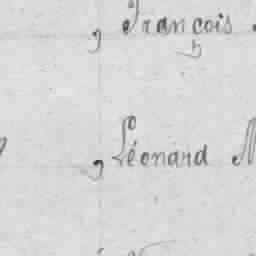 , François
, Léonard